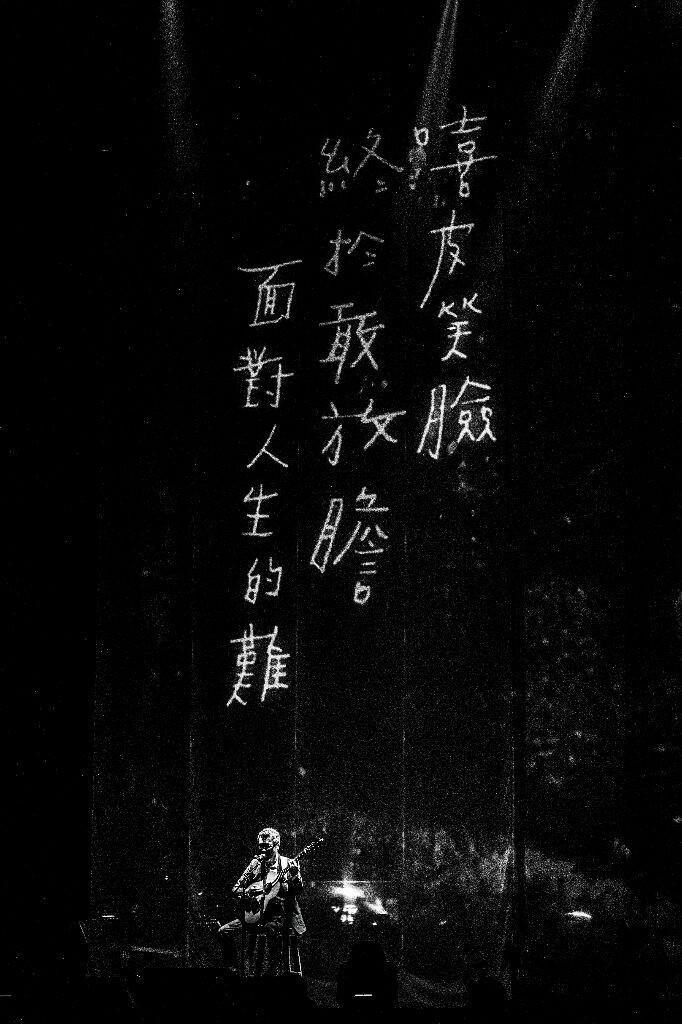 嘻皮笑臉
終於敢放膽
面對人生的難